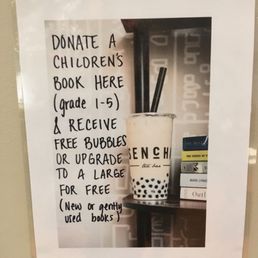 DONATE A
CHILDREN'S
BOOK HERE
(grade 1-5)
& RECEIVE
FREE BUBBLES
OR UPGRADE
TO A LARGE
FOR FREE
(New or gently
used books)
SENCHA
tea bar